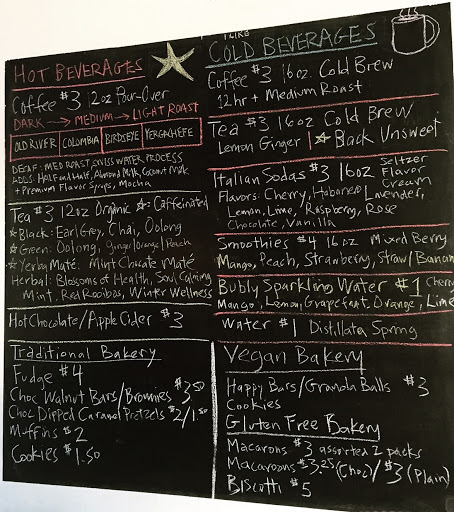 HOT BEVERAGES
Coffee $3 12oz Pour-Over
DARK → MEDIUM → LIGHT ROAST
OLD RIVER | COLUMBIA | BIRDSEYE | YERGACHEFE
DECAF: MED ROAST, SWISS WATER PROCESS
ADDS: Half and Half, Almond Milk, Coconut Milk
+ Premium Flavor Syrups, Mocha
Tea $3 12oz Organic ☆: Caffeinated
☆ Black: Earl Grey, Chai, Oolong
☆ Green: Oolong, Ginger/Orange/Peach
☆ Yerba Maté: Mint Chocolate Maté
Herbal: Blossoms of Health, Soul Calming
Mint, Red Rooibos, Winter Wellness
Hot Chocolate/Apple Cider $3
Traditional Bakery
Fudge $4
Choc Walnut Bars/Brownies $3.50
Choc Dipped Caramel Pretzels $2/1.50
Muffins $2
Cookies $1.50
COLD BEVERAGES
Coffee $3 16oz. Cold Brew
12hr + Medium Roast
Tea $3 16oz Cold Brew
Lemon Ginger | ☆ Black Unsweet
Italian Sodas $3 16oz Seltzer
Flavor
Cream
Flavors: Cherry, Habanero, Lavender,
Lemon, Lime, Raspberry, Rose
Chocolate, Vanilla
Smoothies $4 16oz Mixed Berry
Mango, Peach, Strawberry, Straw/Banan
Bubly Sparkling Water $1 Cherry
Mango, Lemon, Grapefruit, Orange, Lime
Water $1 Distillata Spring
Vegan Bakery
Happy Bars/Granola Balls $3
Cookies
Gluten Free Bakery
Macarons $3 assorted 2 packs
Macaroons $3.25 (Choc)/$3 (Plain)
Biscotti $5